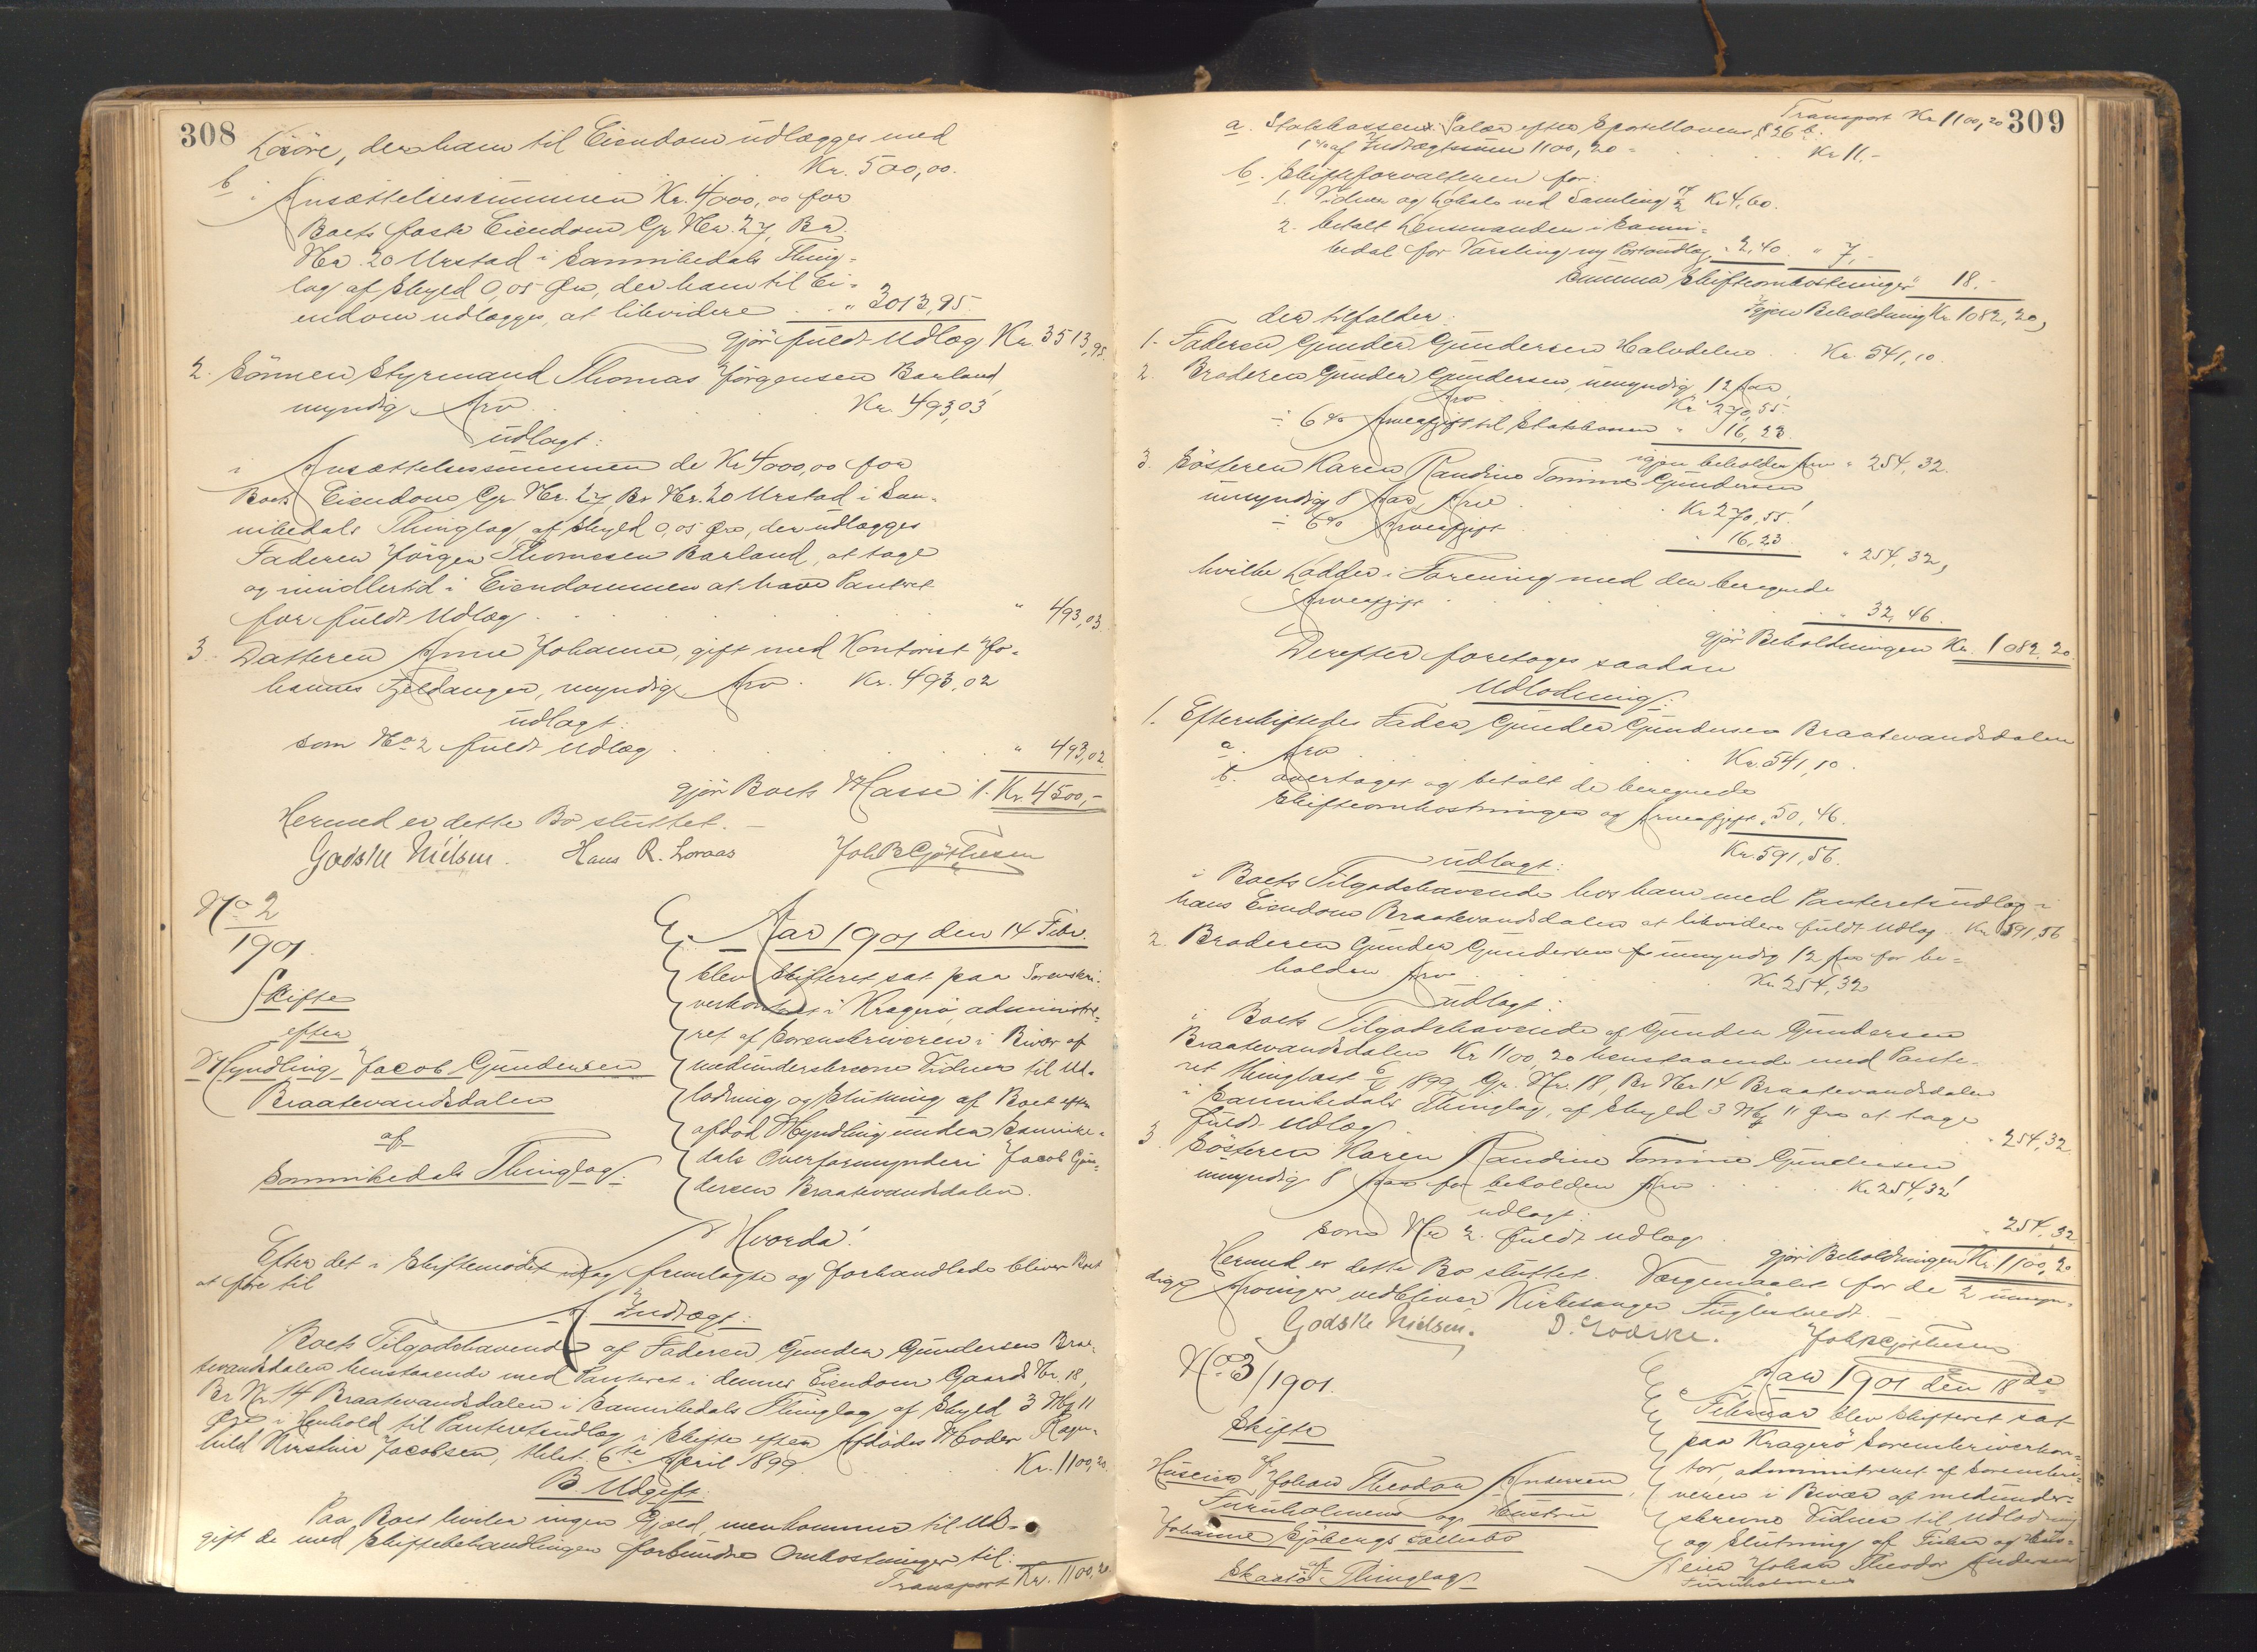 308
Løsøre, der ham til Eiendom udlægges med
Kr. 500,00.
b. i Ansættelsessummen Kr. 4000,00 for
Boets faste Eiendom Gr. Nr. 27, Br.
Nr. 20 Urstad i Sannikedals Thing-
lag af Skyld 0,05 Øre, der ham til Ei-
endom udlægges, at likvidere " 3013,95
gjør fuldt Udlæg Kr. 3513,95.
2. Sønnen Styrmand Thomas Jørgensen Barland,
myndig Arv Kr. 493,03
udlagt:
i Ansættelsessummen de Kr 4000,00 for
Boets Eiendom Gr. Nr. 27, Br. Nr. 20 Urstad i San-
nikedals Thinglag, af Skyld 0,05 Øre, der udlægges
Faderen Jørgen Thomesen Barland, at tage
og imidlertid i Eiendommen at have Panteret
for fuldt Udlæg " 493,03.
3. Datteren Anne Johanne, gift med Kontorist Jo-
hannes Fjeldanger, myndig Arv Kr. 493,02
udlagt:
som No 2 fuldt Udlæg " 493,02.
gjør Boets Masse Kr. 4500,-
Hermed er dette Bo sluttet. -
Godske Nielsen. Hans R. Loraas Joh B Gjøthesen
No 2
1901.
Skifte
efter
Myndling Jacob Gundersen
Braatevandsdalen
af
Sannikedals Thinglag.
Aar 1901 den 14 Febr.
blev Skifteret sat paa Sorenskri-
verkontoret i Kragerø, administre-
ret af Sorenskriveren i Bivær af
medunderskrevne Vidner til Ud-
lodning og Slutning af Boet efter
afdød Myndling under Sannike-
dals Overformynderi Jacob Gun-
dersen Braatevandsdalen.
Hvorda!
Efter det i Skiftemødet idag fremlagte og forhandlede bliver Boet
at føre til
A Indtægt:
Boets Tilgodehavende af Faderen Gunder Gundersen Braa-
tevandsdalen henstaaende med Panteret i dennes Eiendom Gaards Nr. 18,
Br Nr 14 Braatevandsdalen i Sannikedals Thinglag af Skyld 3 Mk 11
Øre i Henhold til Panteretsudlæg i Skifte efter Afdødes Moder Ragn-
hild Kirstine Jacobsen, thlst. 6te April 1899 Kr. 1100,20.
B. Udgift:
Paa Boet hviler ingen Gjæld, men kommer til Ud-
gift de med Skiftebehandlingen forbundne Omkostninger til:
Transport Kr. 1100,20
309
Transport Kr 1100,20
a. Statskassens Salær efter Sportellovens § 26 b.
1 % af Indtægtssum 1100,20 Kr 11.-
b. Skifteforvalteren for:
1. Vidner og Lokale ved Samling Kr 4,60.
2. betalt Lensmanden i Sanni-
kedal for Varsling og Portoudlæg " 2,40 " 7,-
Summa Skifteomkostninger " 18.-
Igjen Beholdning Kr. 1082,20,
der tilfalder:
1. Faderen Gunder Gundersen Halvdelen Kr. 541,10.
2. Broderen Gunder Gundersen, umyndig 12 Aar,
Arv Kr 270,55.
÷ 6 % Arveafgift til Statskassen " 16,23.
igjen beholden Arv " 254,32.
3. Søsteren Karen Randine Tomine Gundersen
umyndig 8 Aar, Arv Kr 270,55
÷ 6 % Arveafgift " 16,23. " 254,32,
hvilke Lodder i Forening med den beregnede
Arveafgift " 32,46.
gjør Beholdningen Kr. 1082,20.
Derefter foretoges saadan
Udlodning:
1. Efterskiftedes Fader, Gunder Gundersen Braatevandsdalen
a. Arv Kr. 541,10.
b. overtaget og betalt de beregnede
Skifteomkostninger og Arveafgift " 50,46.
Kr. 591,56.
udlagt:
i Boets Tilgodehavende hos ham med Panteretsudlæg i
hans Eiendom Braatevandsdalen at likvidere fuldt Udlæg Kr 591,56
2. Broderen Gunder Gundersen umyndig 12 Aar for be-
holden Arv Kr. 254,32
udlagt:
i Boets Tilgodehavende af Gunder Gundersen
Braatevandsdalen Kr 1100,20 henstaaende med Pante-
ret thinglæst 6/4 1899, Gr. Nr. 18, Br Nr 14 Braatevandsdalen
i Sannikedals Thinglag, af Skyld 3 Mk 11 Øre at tage
fuldt Udlæg " 254,32.
3. Søsteren Karen Randine Tomine Gundersen
umyndig 8 Aar for beholden Arv Kr 254,32
udlagt:
som Nr 2. fuldt udlæg " 254,32
gjør Beholdningen Kr. 1100,20.
Hermed er dette Bo sluttet. Værgemaalet for de 2 umyn-
dige Arvinger vedbliver Kirkesanger Fuglestvedt.
Godske Nielsen. Joh B Gjøthesen
No 3/1901.
Skifte
Johan Theodor Andersen,
Furuholmens og Hustru
Johanne Sjøbergs Fællesbo
af
Skaatø Thinglag.
Aar 1901 den 18de
Februar blev Skifteret sat
paa Kragerø Sorenskriverkon-
tor, administreret af Sorenskri-
veren i Bivær af medunder-
skrevne Vidner til Udlodning
og Slutning af Fisker og Hus-
eier Johan Theodor Andersen
Furuholmens